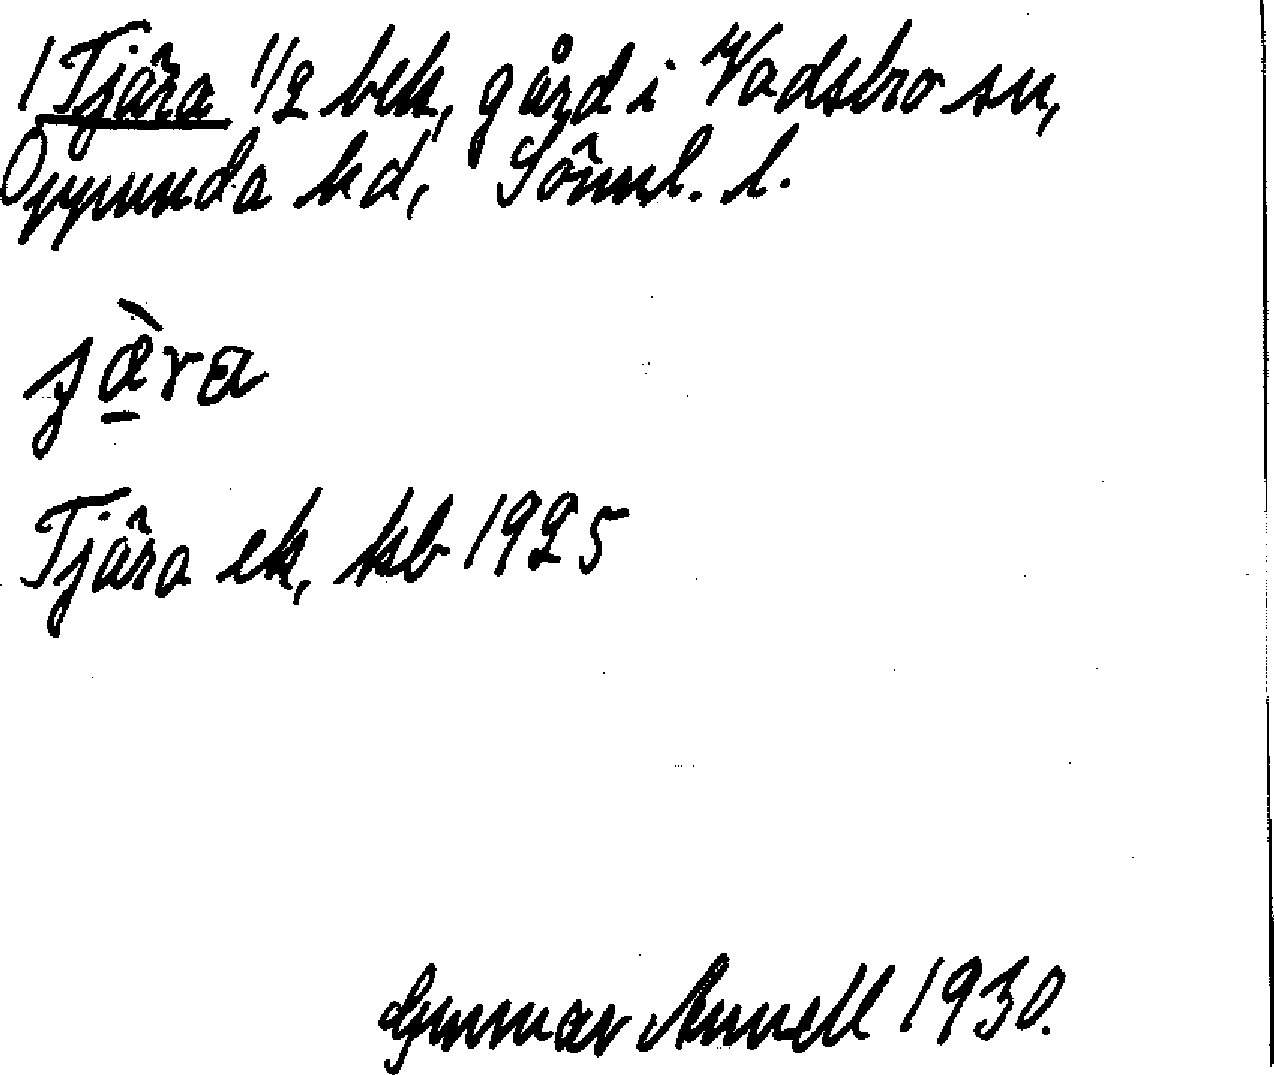 1 Tjära 1/2 bek, gård i Vadsbro sn,
Oppunda hd, Söml. l.
Tjära ek, kb 1925
Gunnar Annell 1930.